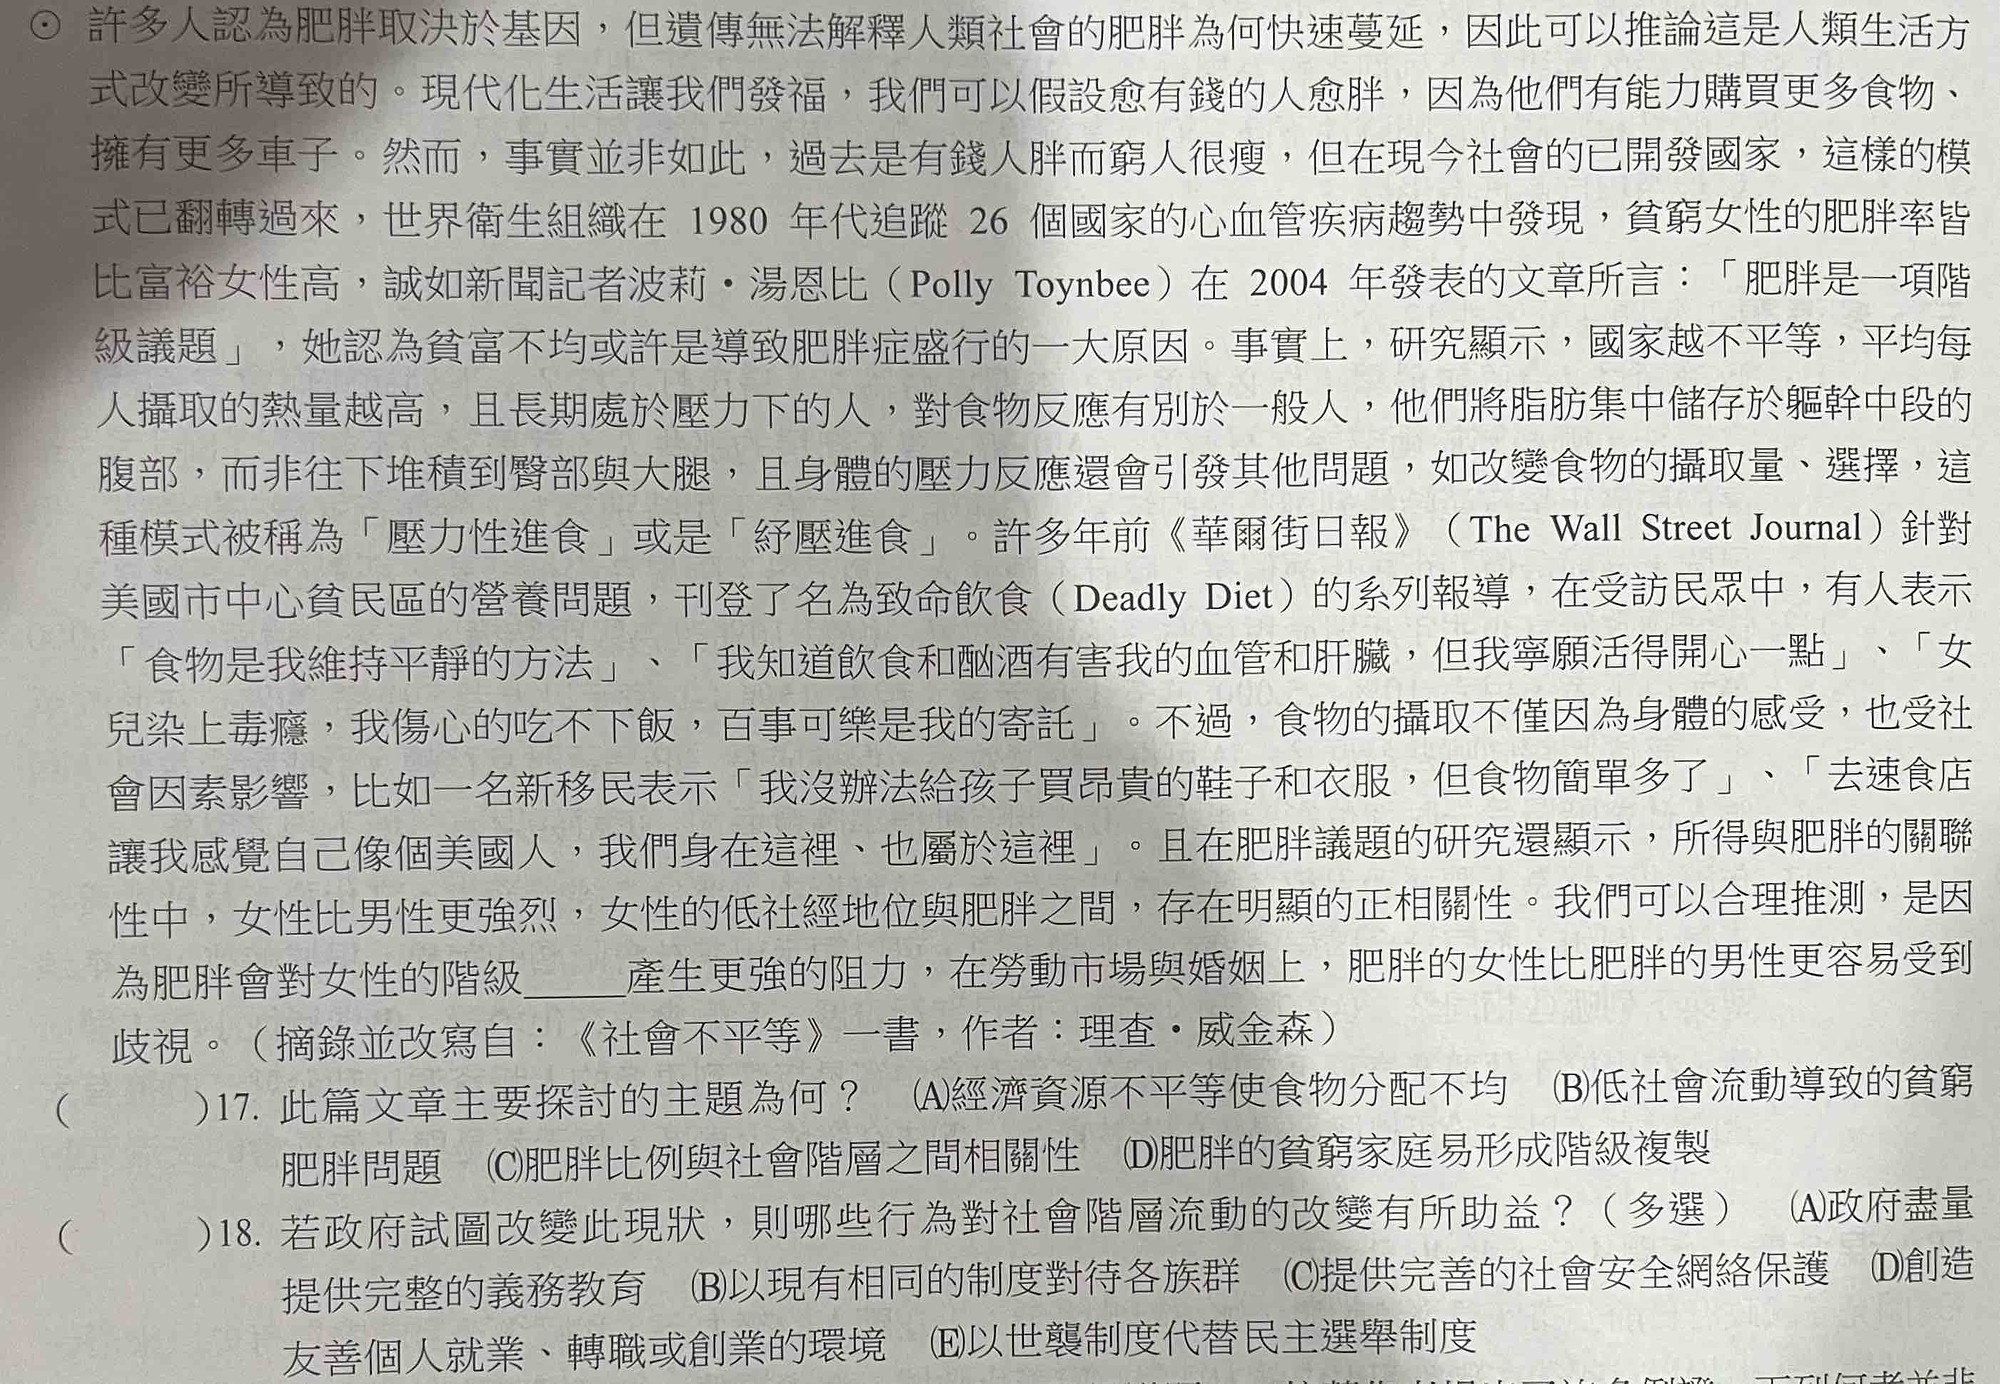 ⊙ 許多人認為肥胖取決於基因，但遺傳無法解釋人類社會的肥胖為何快速蔓延，因此可以推論這是人類生活方
式改變所導致的。現代化生活讓我們發福，我們可以假設愈有錢的人愈胖，因為他們有能力購買更多食物、
擁有更多車子。然而，事實並非如此，過去是有錢人胖而窮人很瘦，但在現今社會的已開發國家，這樣的模
式已翻轉過來，世界衛生組織在 1980 年代追蹤 26 個國家的心血管疾病趨勢中發現，貧窮女性的肥胖率皆
比富裕女性高，誠如新聞記者波莉•湯恩比（Polly Toynbee）在 2004 年發表的文章所言：「肥胖是一項階
級議題」，她認為貧富不均或許是導致肥胖症盛行的一大原因。事實上，研究顯示，國家越不平等，平均每
人攝取的熱量越高，且長期處於壓力下的人，對食物反應有別於一般人，他們將脂肪集中儲存於軀幹中段的
腹部，而非往下堆積到臀部與大腿，且身體的壓力反應還會引發其他問題，如改變食物的攝取量、選擇，這
種模式被稱為「壓力性進食」或是「紓壓進食」。許多年前《華爾街日報》（The Wall Street Journal）針對
美國市中心貧民區的營養問題，刊登了名為致命飲食（Deadly Diet）的系列報導，在受訪民眾中，有人表示
「食物是我維持平靜的方法」、「我知道飲食和酗酒有害我的血管和肝臟，但我寧願活得開心一點」、「女
兒染上毒癮，我傷心的吃不下飯，百事可樂是我的寄託」。不過，食物的攝取不僅因為身體的感受，也受社
會因素影響，比如一名新移民表示「我沒辦法給孩子買昂貴的鞋子和衣服，但食物簡單多了」、「去速食店
讓我感覺自己像個美國人，我們身在這裡、也屬於這裡」。且在肥胖議題的研究還顯示，所得與肥胖的關聯
性中，女性比男性更強烈，女性的低社經地位與肥胖之間，存在明顯的正相關性。我們可以合理推測，是因
為肥胖會對女性的階級_____產生更強的阻力，在勞動市場與婚姻上，肥胖的女性比肥胖的男性更容易受到
歧視。（摘錄並改寫自：《社會不平等》一書，作者：理查•威金森）
(　　)17. 此篇文章主要探討的主題為何？　(A)經濟資源不平等使食物分配不均　(B)低社會流動導致的貧窮
肥胖問題　(C)肥胖比例與社會階層之間相關性　(D)肥胖的貧窮家庭易形成階級複製
(　　)18. 若政府試圖改變此現狀，則哪些行為對社會階層流動的改變有所助益？（多選）　(A)政府盡量
提供完整的義務教育　(B)以現有相同的制度對待各族群　(C)提供完善的社會安全網絡保護　(D)創造
友善個人就業、轉職或創業的環境　(E)以世襲制度代替民主選舉制度